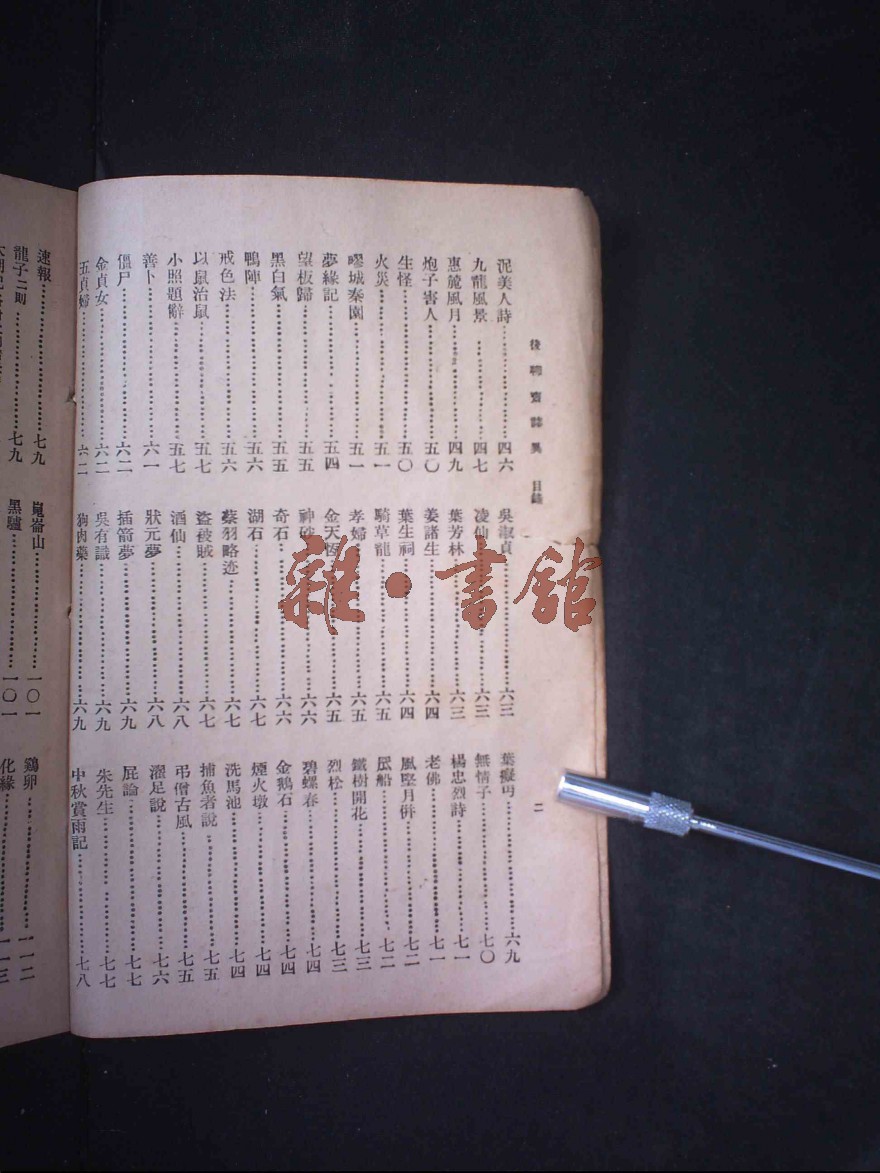 後聊齋誌異 目錄
二
泥美人詩⋯⋯四六
九龍風景⋯⋯四七
惠麓風月⋯⋯四九
炮子害人⋯⋯五〇
生怪⋯⋯五〇
火災⋯⋯五一
疁城秦園⋯⋯五一
夢緣記⋯⋯五四
望板歸⋯⋯五五
黑白氣⋯⋯五五
鴨陣⋯⋯五六
戒色法⋯⋯五六
以鼠治鼠⋯⋯五七
小照題辭⋯⋯五七
善卜⋯⋯六一
僵尸⋯⋯六二
金貞女⋯⋯六二
五貞婦⋯⋯六二
吳淑貞⋯⋯六三
凌仙⋯⋯六三
葉芳林⋯⋯六三
姜諸生⋯⋯六四
葉生祠⋯⋯六四
騎草龍⋯⋯六五
孝婦⋯⋯六五
金天恆⋯⋯六五
神破⋯⋯六六
奇石⋯⋯六六
湖石⋯⋯六七
蔡羽略迹⋯⋯六七
盜被賊⋯⋯六七
酒仙⋯⋯六八
狀元夢⋯⋯六八
插箭夢⋯⋯六九
吳有識⋯⋯六九
狗肉藥⋯⋯六九
葉癡丐⋯⋯六九
無情子⋯⋯七〇
楊忠烈詩⋯⋯七一
老佛⋯⋯七一
風堅月併⋯⋯七二
屃船⋯⋯七二
鐵樹開花⋯⋯七三
烈栓⋯⋯七三
碧螺春⋯⋯七四
金鵝石⋯⋯七四
煙火墩⋯⋯七四
洗馬池⋯⋯七四
捕魚者說⋯⋯七五
弔僧古風⋯⋯七五
濯足說⋯⋯七六
屁論⋯⋯七七
朱先生⋯⋯七七
中秋賞雨記⋯⋯七八
速報⋯⋯七九
龍子二則⋯⋯七九
崑崙山⋯⋯一〇一
黑驢⋯⋯一〇一
鷄卵⋯⋯一一二
化緣⋯⋯一一三
雜·書館